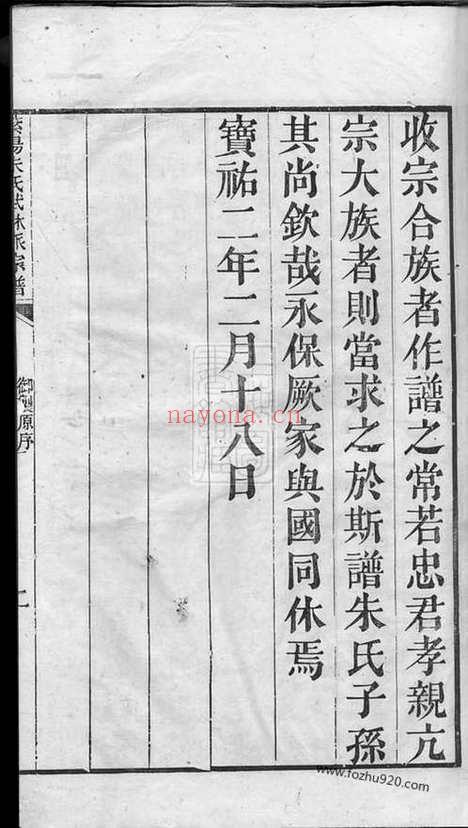 收宗合族者作譜之常若忠君孝親亢
宗大族者則當求之於斯譜朱氏子孫
其尚欽哉永保厥家與國同休焉
寶祐二年二月十八日
紫陽朱氏武林派宗譜
御製原序
nayona.cn
www.fozhu920.com